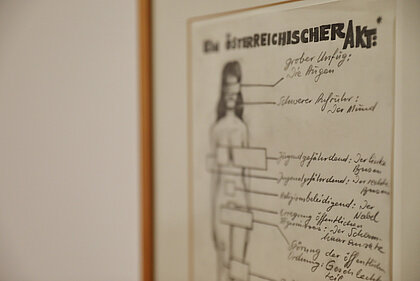 EIN ÖSTERREICHISCHER AKT:*
grober Unfug:
Die Augen
Schwerer Aufruhr:
Der Mund
Jugendgefährdend: Der linke
Busen
Jugendgefährdend: Der rechte
Busen
Religionsbeleidigend: Der
Nabel
Erregung öffentlichen
Ärgernisses: Der Scham-
haaransatz
Störung der öffentlichen
Ordnung: Geschlechts
teil